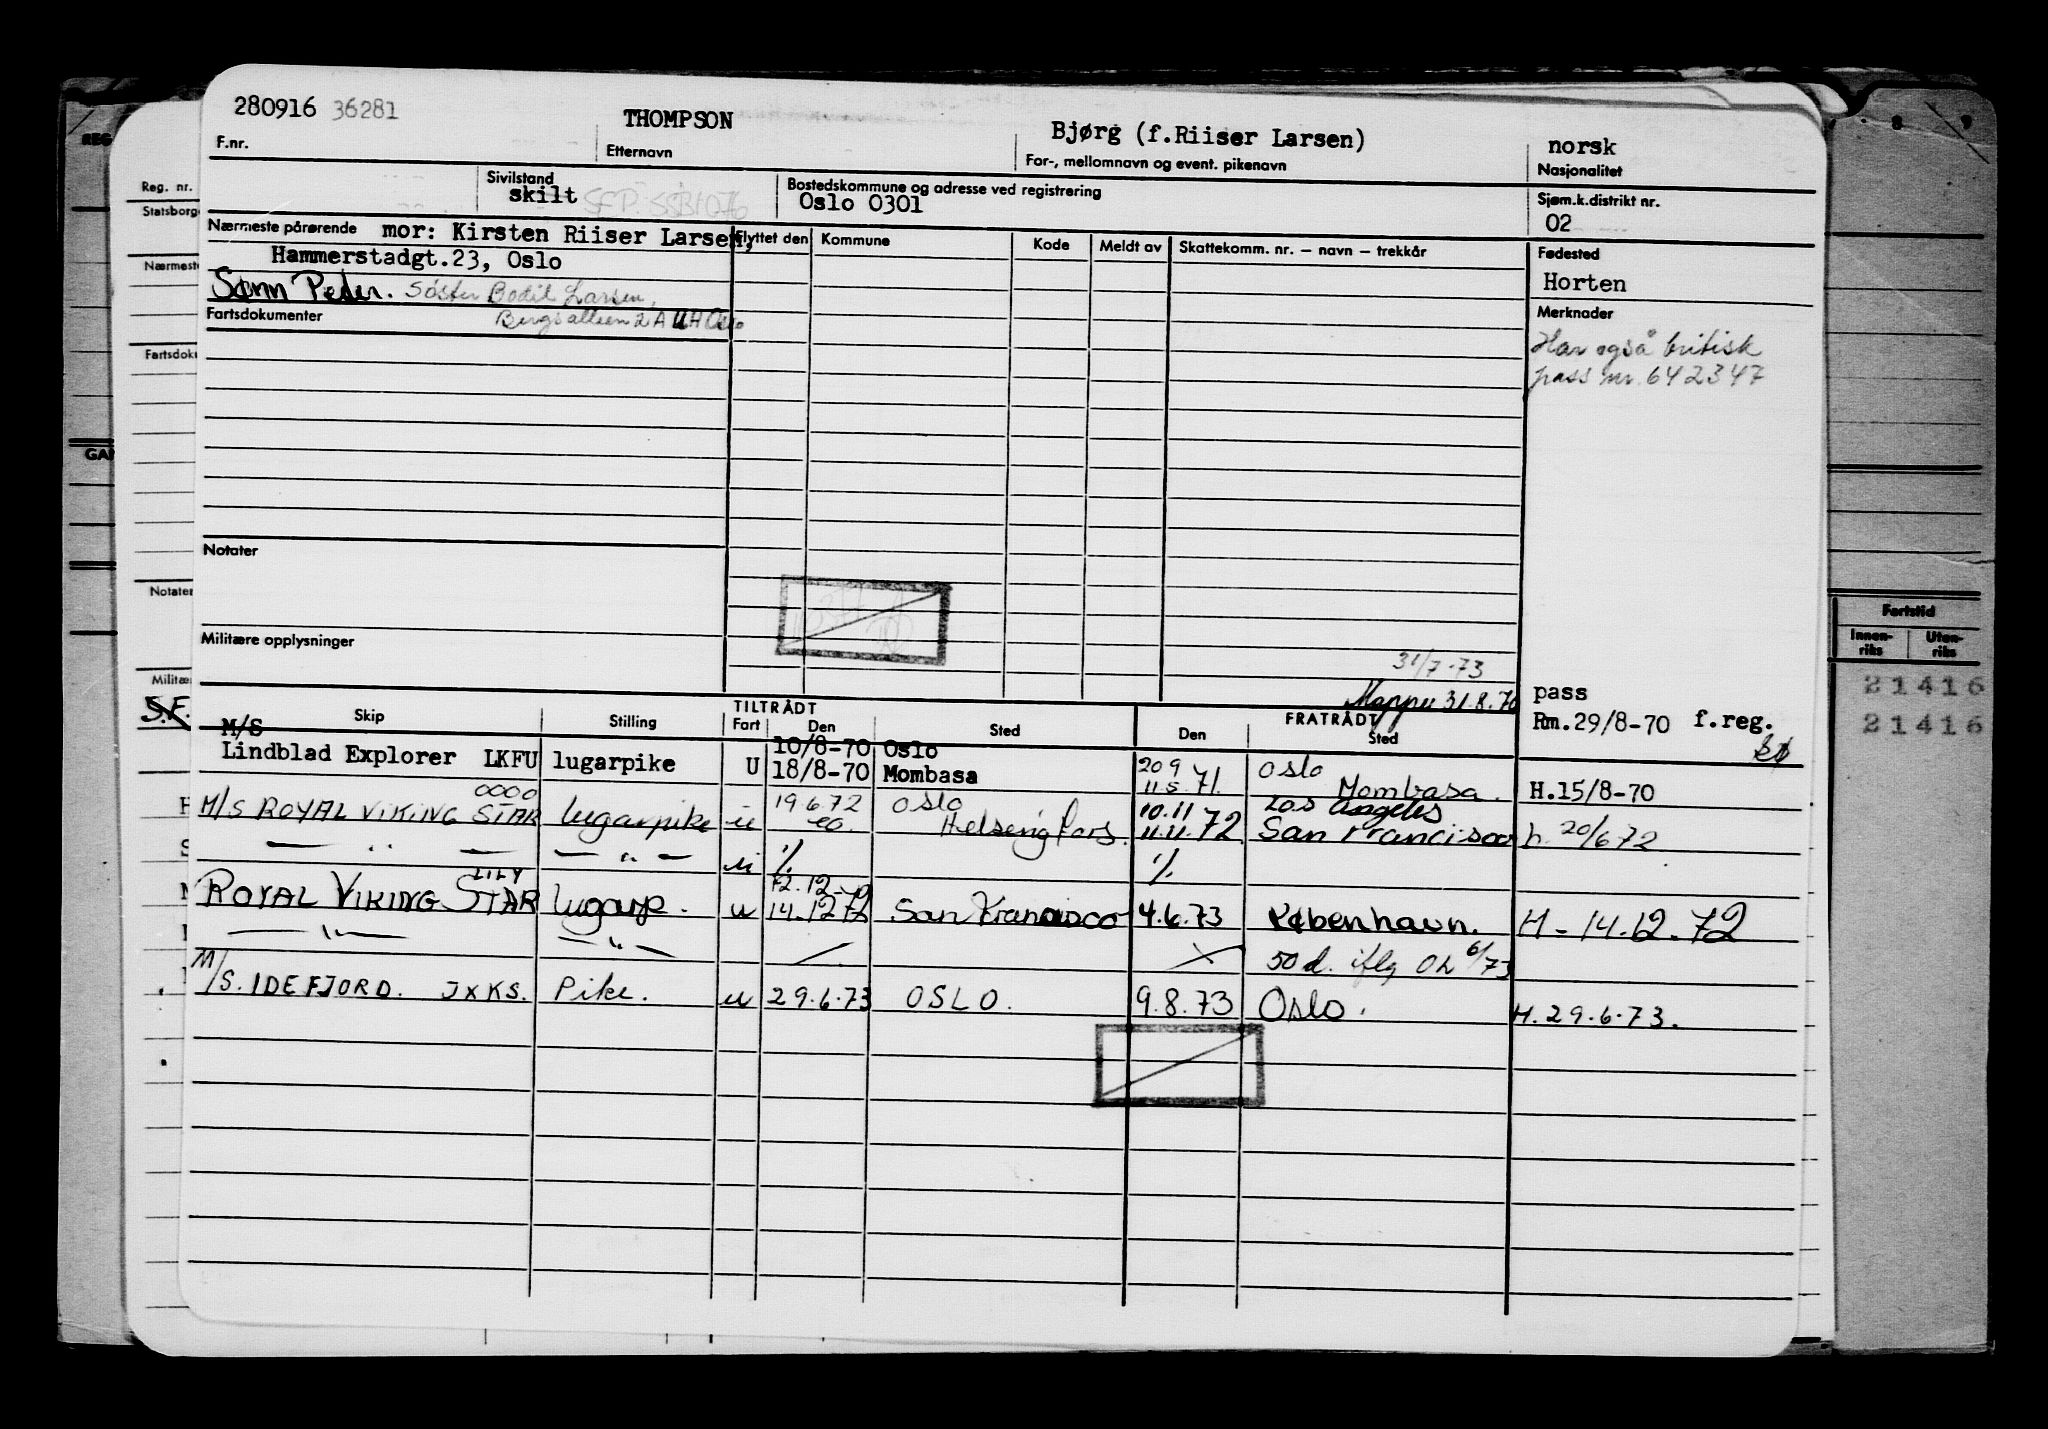 280916 36281
THOMPSON
Bjørg (f.Riiser Larsen)
norsk
F.nr.
Etternavn
For-, mellomnavn og event. pikenavn
Nasjonalitet
Sivilstand
skilt
Bostedskommune og adresse ved registrering
Oslo 0301
Sjøm.k.distrikt nr.
02
Nærmeste pårørende mor: Kirsten Riiser Larsen,
Hammerstadgt.23, Oslo
Sønn Peder. Søster Bodil Larsen,
Bergsalleen 2A UH Oslo
Flyttet den
Kommune
Kode
Meldt av
Skattekomm. nr. — navn — trekkår
Fødested
Horten
Fartsdokumenter
Merknader
Har også britisk
pass nr. 642347
Notater
Militære opplysninger
31/7-73
Mappe 31.8.70
pass
Rm.29/8-70 f.reg.
Skip
Stilling
TILTRÅDT
Fart
Den
Sted
FRATRÅDT
Den
Sted
M/S
Lindblad Explorer LKFU lugarpike U 10/8-70 Oslo
18/8-70 Mombasa
20 9
11.5.71. Oslo
Mombasa. H.15/8-70
M/S ROYAL VIKING STAR lugarpike u 19.6.72 Oslo
Helsingfors. 10.11
11.11 72 Los Angeles
San Francisco h. 20/6 72
— " — — " — u % %
ROYAL VIKING STAR LILY lugarp. u 12.12.72
14.12.72 San Francisco 4.6.73 København. H - 14.12.72
— " — — " — 50 d. iflg OL 6/73
M/S. IDEFJORD. JXKS. Pike. u 29.6.73 OSLO. 9.8.73 Oslo. H. 29.6.73.
Reg. nr.
Notater
S.F.
Fartstid
Innen-
riks
Uten-
riks
21416
21416